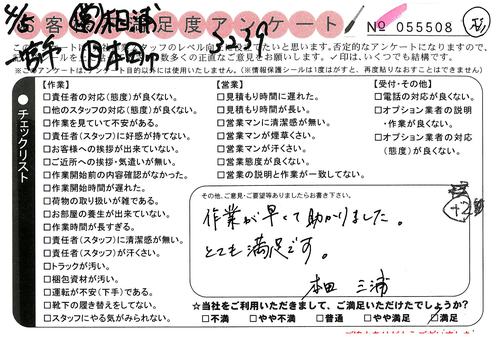 お客様満足度アンケート
№ 055508
5239
このアンケートは
スタッフのレベル向上に役立てたいと思います。否定的なアンケートになりますので、
数多くの正直なご意見をお願いします。✓印は、いくつでも結構です。
※ご記入のアンケートは、アンケート目的以外には使用いたしません。(※情報保護シールは1度はがすと、再度貼りなおすことはできません)
チェックリスト
【作業】
□責任者の対応(態度)が良くない。
□他のスタッフの対応(態度)が良くない。
□作業を見ていて不安がある。
□責任者(スタッフ)に好感が持てない。
□お客様への挨拶が出来ていない。
□ご近所への挨拶・気遣いが無い。
□作業開始前の内容確認がなかった。
□作業開始時間が遅れた。
□荷物の取り扱いが雑である。
□お部屋の養生が出来ていない。
□作業時間が長すぎる。
□責任者(スタッフ)に清潔感が無い。
□責任者(スタッフ)が汗くさい。
□トラックが汚い。
□梱包資材が汚い。
□運転が不安(下手)である。
□靴下の履き替えをしてない。
□スタッフにやる気がみられない。
【営業】
□見積もり時間に遅れた。
□見積もり時間が長い。
□営業マンに清潔感が無い。
□営業マンが煙草くさい。
□営業マンが汗くさい。
□営業態度が良くない。
□営業の説明と作業が一致してない。
【受付・その他】
□電話の対応が良くない。
□オプション業者の説明
・作業が良くない。
□オプション業者の対応
(態度)が良くない。
その他、ご意見・ご要望等ありましたらお書き下さい。
作業が早くて助かりました。
とても満足です。
本田 三浦
+2
☆当社をご利用いただきまして、ご満足いただけたでしょうか?
□不満 □やや不満 □普通 □やや満足 ☑満足